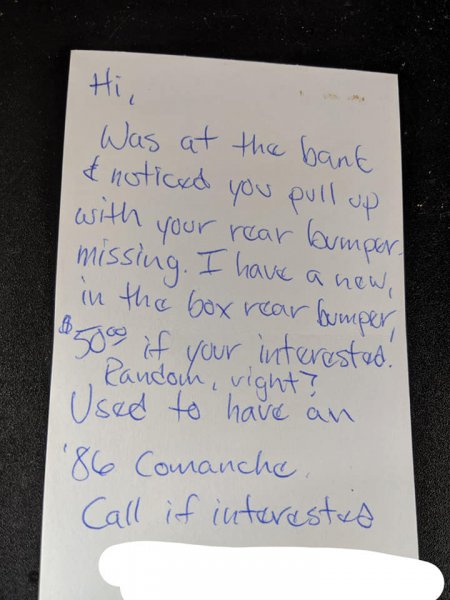 Hi,
Was at the bank
& noticed you pull up
with your rear bumper
missing. I have a new,
in the box rear bumper,
$50.00 if your interested!
Random, right?
Used to have an
'86 Comanche.
Call if interested